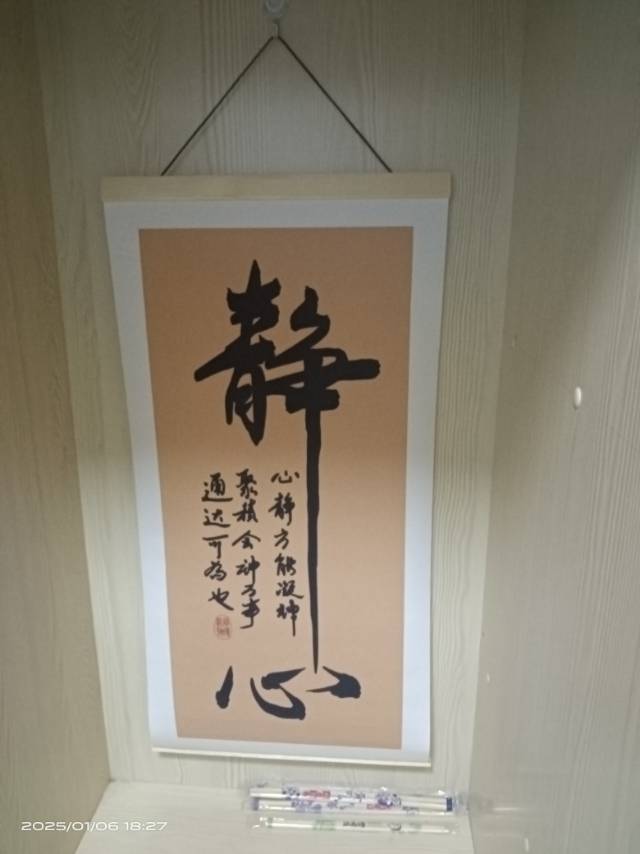 静
心
心静方能凝神
聚积会神万事
通达可为也
2025/01/06 18:27